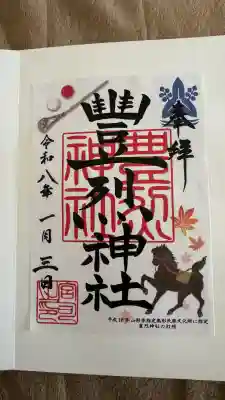 奉拝
豊烈神社
令和八年 一月 三日
平成18年山形市指定無形民俗文化財に指定
豊烈神社の打毬